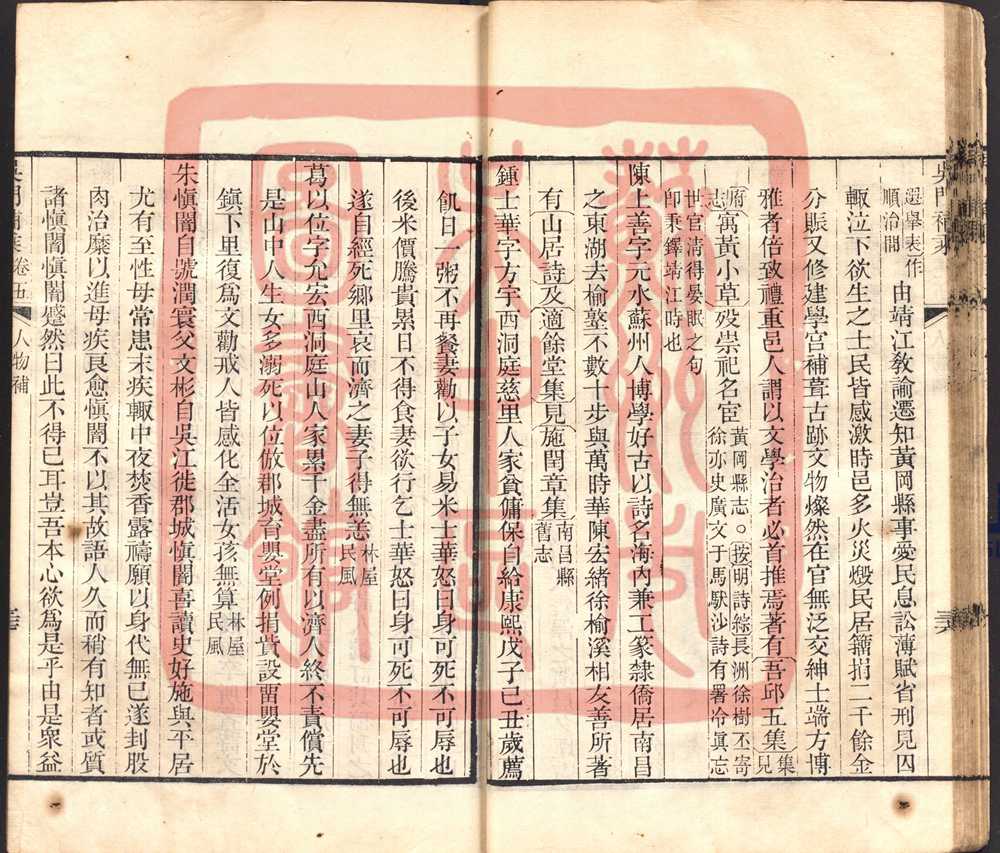 選舉表作
順治間
由靖江敎諭遷知黃岡縣事愛民息訟薄賦省刑見囚
輒泣下欲生之士民皆感激時邑多火災燬民居籍捐二千餘金
分賑又修建學宮補葺古跡文物燦然在官無泛交紳士端方博
雅者倍致禮重邑人謂以文學治者必首推焉著有吾邱五集
集
見
府
志
寓黃小草歿祟祀名宦
黃岡縣志○按明詩綜長洲徐樹丕寄
徐亦史廣文于馬馱沙詩有署冷眞忘
世官淸得晏眠之句
卽秉鐸靖江時也
陳上善字元水蘇州人博學好古以詩名海內兼工篆隸僑居南昌
之東湖去榆墪不數十步與萬時華陳宏緒徐榆溪相友善所著
有山居詩及適餘堂集見施閏章集
南昌縣
舊志
鍾士華字方宇西洞庭慈里人家貧傭保自給康熙戊子己丑歲薦
飢日一粥不再餐妻勸以子女易米士華怒曰身可死不可辱也
後米價騰貴累日不得食妻欲行乞士華怒曰身可死不可辱也
遂自經死鄉里哀而濟之妻子得無恙
林屋
民風
葛以位字允宏西洞庭山人家累千金盡所有以濟人終不責償先
是山中人生女多溺死以位倣郡城育嬰堂例捐貲設畱嬰堂於
鎭下里復爲文勸戒人皆感化全活女孩無算
林屋
民風
朱愼闇自號潤寰父文彬自吳江徙郡城愼闇喜讀史好施與平居
尤有至性母常患末疾輒中夜焚香露禱願以身代無已遂封股
肉治糜以進母疾良愈愼闇不以其故語人久而稍有知者或質
諸愼闇愼闇蹙然曰此不得已耳豈吾本心欲爲是乎由是衆益
卷五
人物補